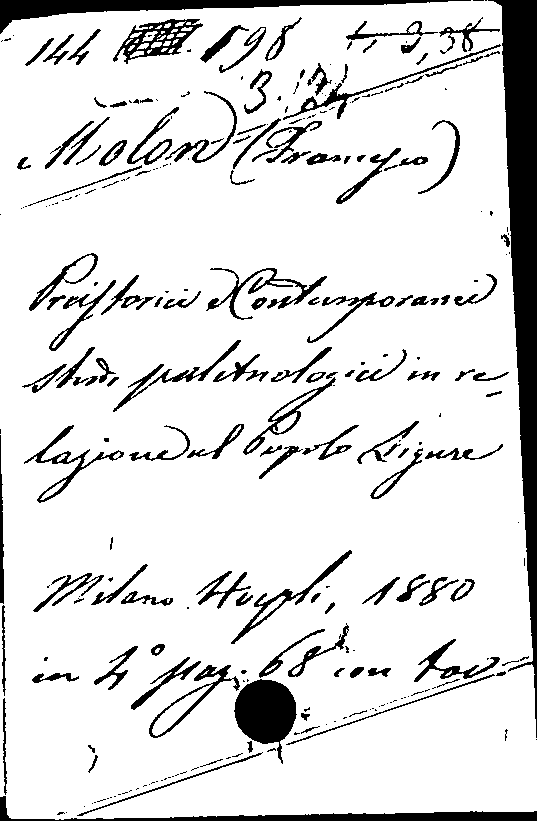 144 598 1, 3, 38
3.24
Molon (Francesco)
Preistorici e Contemporanei
studi paletnologici in re-
lazione al Popolo Ligure
Milano Hoepli, 1880
in 4° pag. 68 con tav.